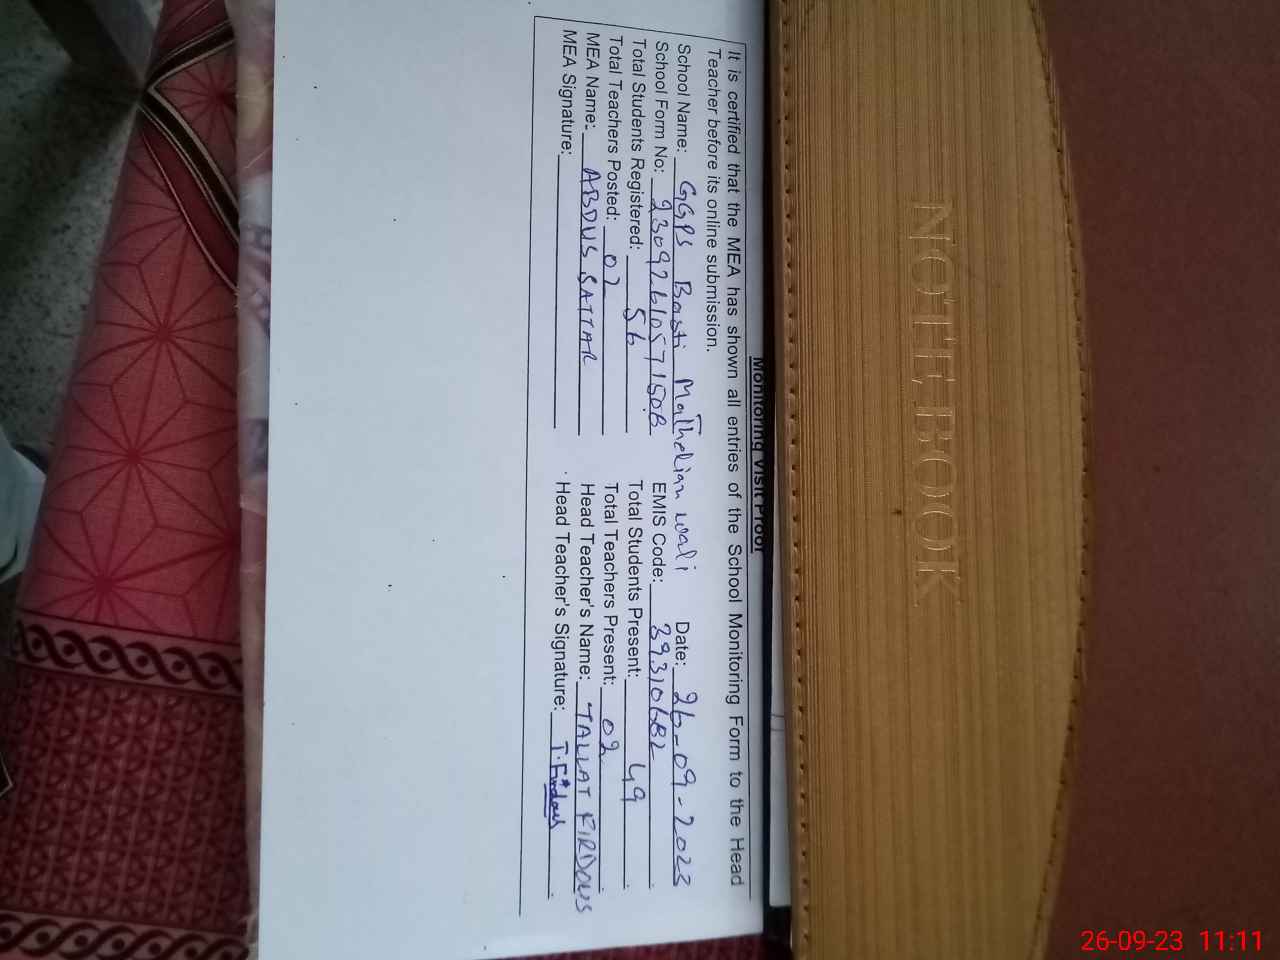 Monitoring Visit Proof
It is certified that the MEA has shown all entries of the School Monitoring Form to the Head
Teacher before its online submission.
School Name: GGPS Basti Mathelian wali Date: 26-09-2023
School Form No: 230926105715DB EMIS Code:
Total Students Registered: 56 Total Students Present: 49
Total Teachers Posted: 02 Total Teachers Present: 02
MEA Name: ABDUS SATTAR Head Teacher's Name: TALLAT FIRDOUS
MEA Signature: Head Teacher's Signature: T. Firdous
NOTE BOOK
26-09-23 11:11